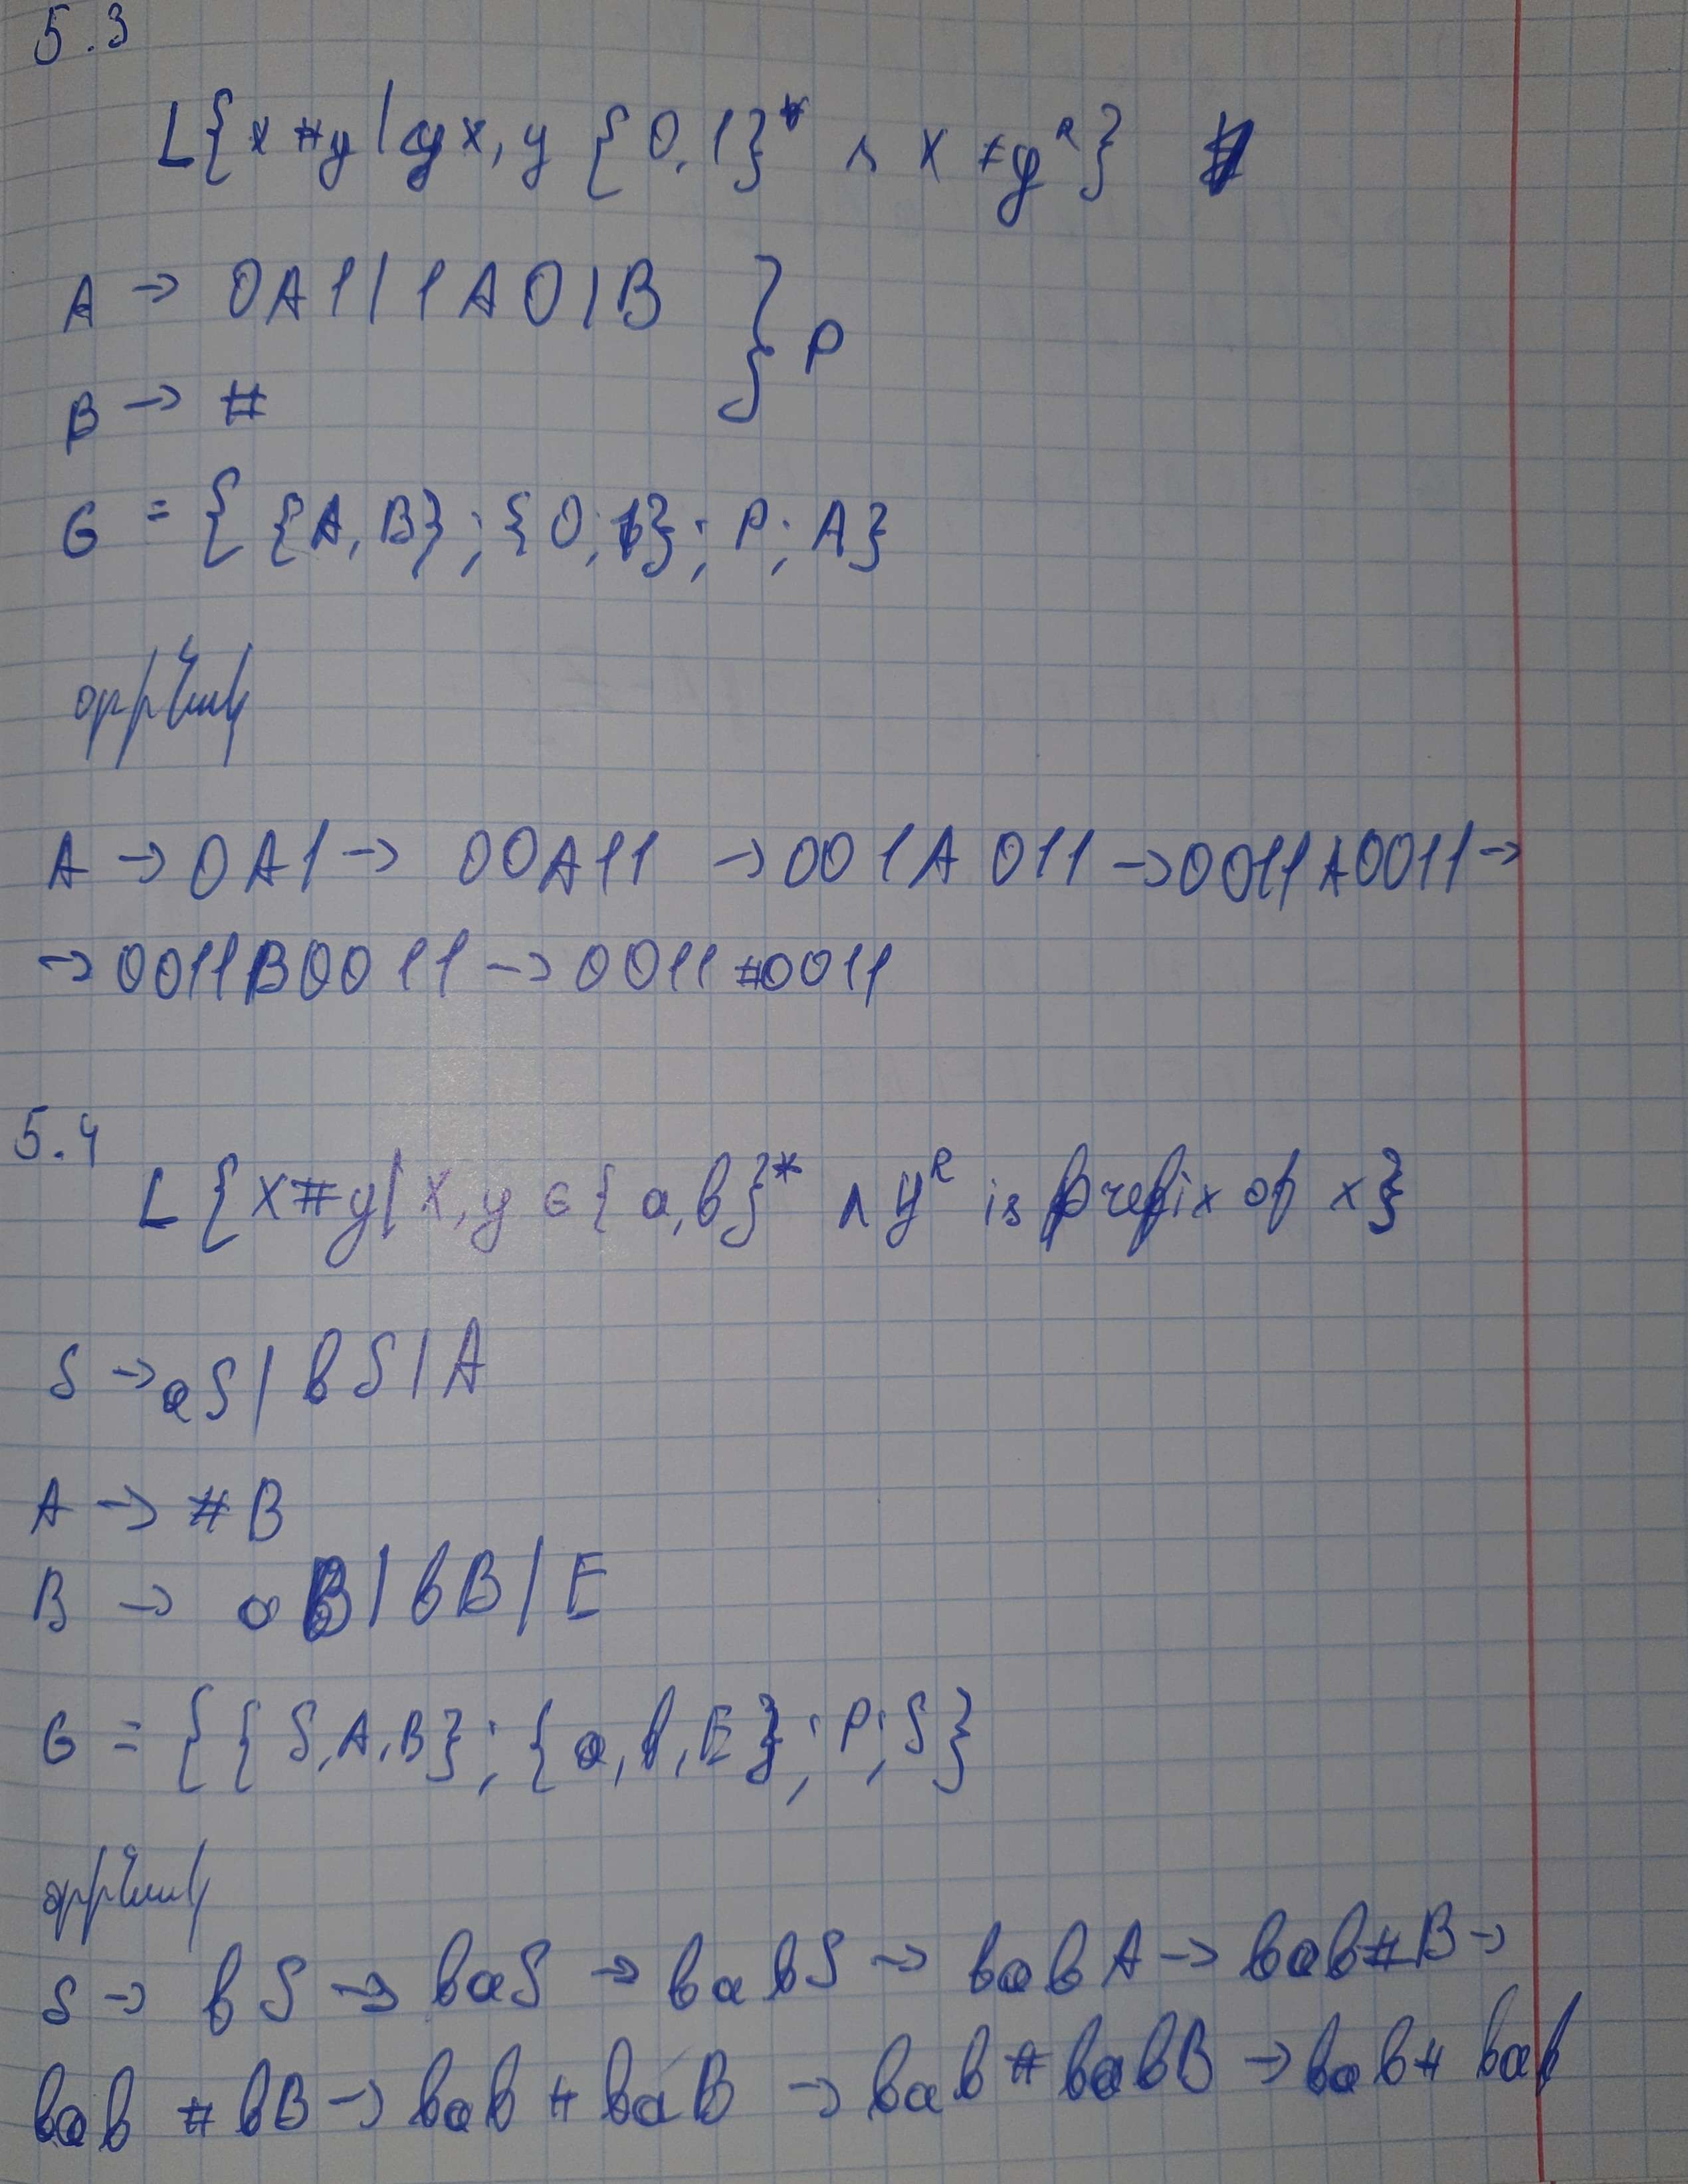 5.3
L{x#y|x,y {0,1}* ∧ x≠y^R}
A → 0A1|1A0|B } P
B → #
G = {{A,B};{0;1};P;A}
օրինակ
A → 0A1 → 00A11 → 001A011 → 0011A0011 →
→ 0011B0011 → 0011#0011
5.4
L{x#y|x,y ∈ {a,b}* ∧ y^R is prefix of x}
S → aS|bS|A
A → #B
B → aB|bB|E
G = {{S,A,B};{a,b,E};P;S}
օրինակ
S → bS → baS → babS → babA → bab#B →
bab #bB → bab#baB → bab#babB → bab#bab